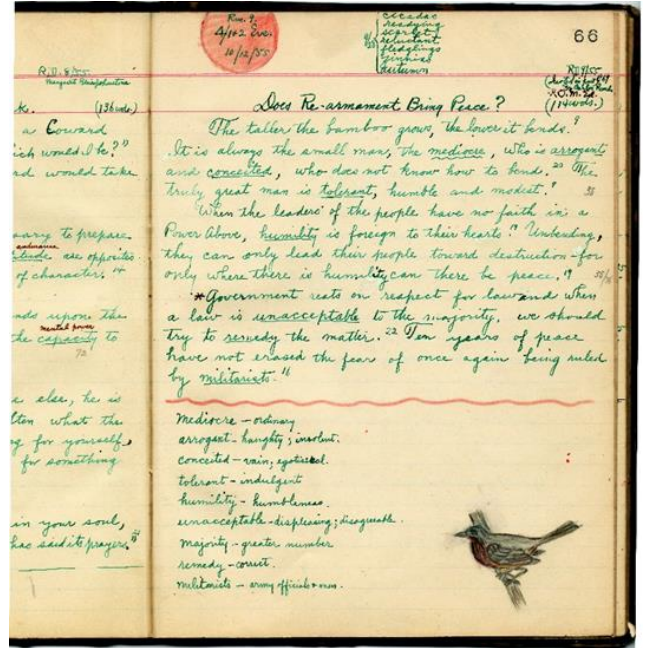 Rm. 9.
4/1+2 Eve.
10/12/55
cicadae
readying
scarlet
reluctant
fledglings
finches
autumn
66
R.D. 8
Margaret
(136 wds.)
a Coward
ich would I be?"
rd would take
sary to prepare
endurance
itude are opposites
of character. 14
nds upon the
mental power
the capacity to
e else, he is
ften what the
g for yourself,
for something
in your soul,
has said its prayers."
(114 wds.)
Does Re-armament Bring Peace?
The taller the bamboo grows, the lower it bends. 9
It is always the small man, the mediocre, who is arrogant
and conceited, who does not know how to bend. 20 The
truly great man is tolerant, humble and modest. 9
When the leaders of the people have no faith in a
Power Above, humility is foreign to their hearts. Unbending,
they can only lead their people toward destruction - for
only where there is humility can there be peace. 19
*Government rests on respect for law and when
a law is unacceptable to the majority, we should
try to remedy the matter. 22 Ten years of peace
have not erased the fear of once again being ruled
by militarists. 16
mediocre - ordinary
arrogant - haughty; insolent.
conceited - vain; egotistical.
tolerant - indulgent
humility - humbleness.
unacceptable - displeasing; disagreeable.
majority - greater number
remedy - correct.
militarists - army officials + men.